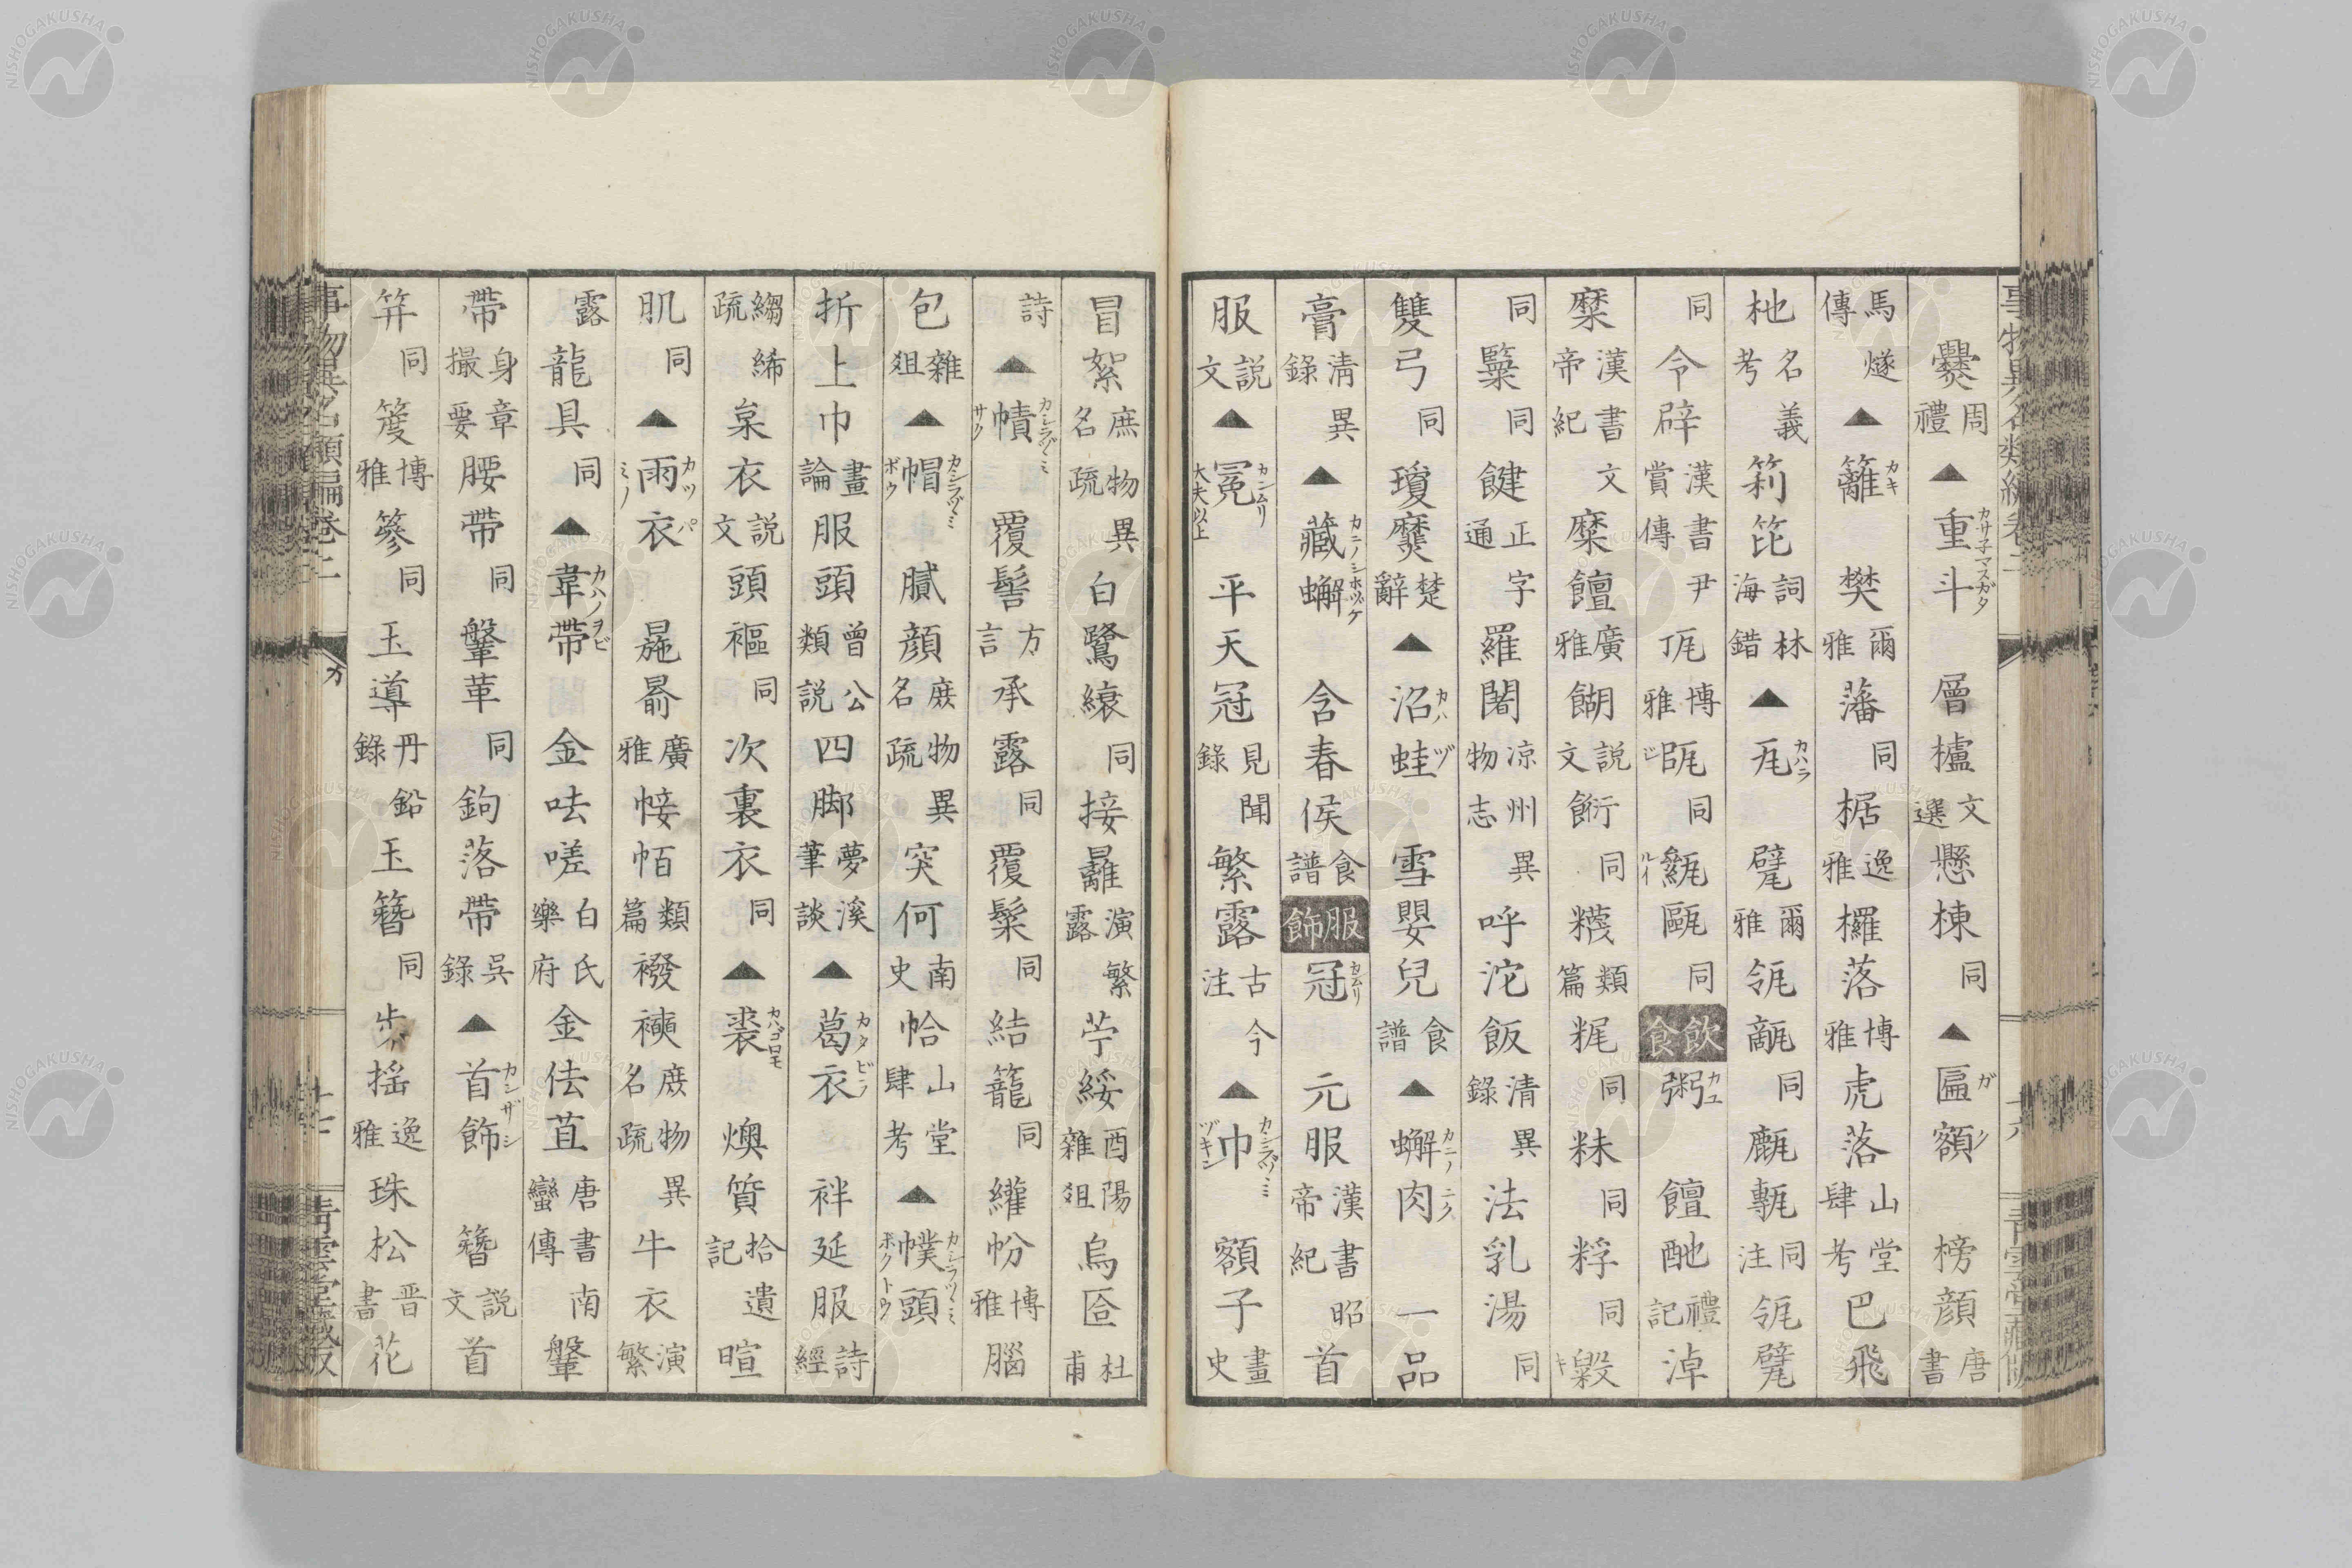 爨周禮▲重斗カサ子マスガタ層櫨文選懸棟同▲匾額ガク榜顏唐書
馬燧傳▲籬カキ樊爾雅藩同椐逸雅欏落博雅虎落山堂肆考巴飛
杝名義考䈆笓詞林海錯▲瓦カハラ甓爾雅瓴甋同甗甎同注瓴甓
同令辟漢書尹賞傳博雅同同飲食粥カユ饘酏禮記淖
糜漢書文帝紀糜饘廣雅餬説文䭈同類篇同同同
同同䭈正字通羅闍凉州異物志呼沱飯清異錄法乳湯同
雙弓同瓊糜楚辭▲沼蛙カハヅ雪嬰兒食譜▲蠏肉カニノニク一品
膏清異錄▲藏蠏カニノシホヅケ含春侯食譜服飾冠カムリ元服漢書昭帝紀首
服説文▲冕カンムリ大夫以上平天冠見聞錄繁露古今注▲巾カシラヅヽミヅキン額子畫史
冒絮庶物異名疏白鷺縗同接䍦演繁露苧綏酉陽雜俎烏匼杜甫
詩▲幘カシラヅヽミサク覆髻方言承露同覆髤同結籠同帉博雅腦
包雜俎▲帽カシラヅヽミボウ膩顏庶物異名疏突何南史帢山堂肆考▲幞頭カシラヅヽミホクトウ
折上巾畫論服頭曾公類説四脚夢溪筆談▲葛衣カタビラ袢延服詩經
縐絺疏枲衣説文頭䙔同次裏衣同▲裘カハゴロモ燠質拾遺記暄
肌同▲雨衣カツパミノ廣雅帹帞類篇襏襫庶物異名疏牛衣演繁
露龍具同▲韋帶カハノヲビ金呿嗟白氏樂府金佉苴唐書南蠻傳鞶
帶身章撮要腰帶同鞶革同鉤落帶吳錄▲首飾カンザシ簪説文首
笄同博雅篸同玉導丹鉛錄玉簪同步揺逸雅珠松晋書花